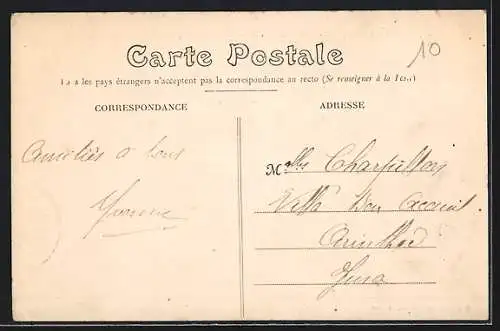 10
Carte Postale
les pays étrangers n'acceptent pas la correspondance au recto (Se renseigner à la
CORRESPONDANCE
ADRESSE
Amitiés à tous
Yvonne
Melles Charpillon
Villa Bon Accueil
Arinthod
Jura